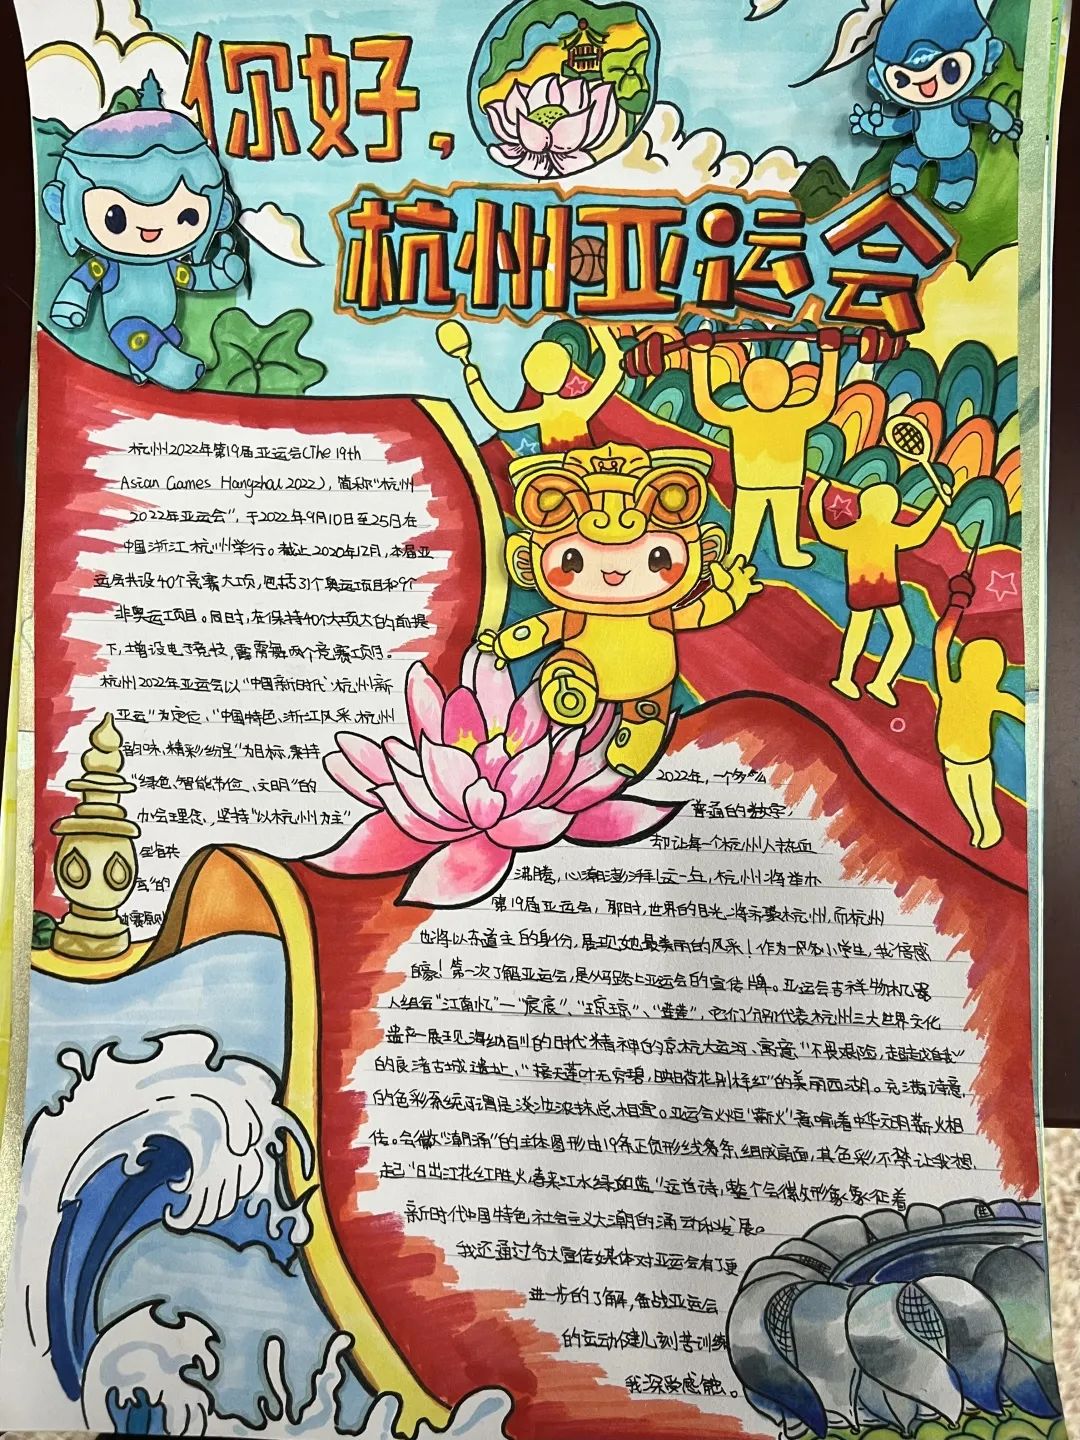 你好，
杭州亚运会
杭州2022年第19届亚运会(The 19th
Asian Games Hangzhou 2022)，简称"杭州
2022年亚运会"，于2022年9月10日至25日在
中国浙江杭州举行。截止2020年12月，本届亚
运会共设40个竞赛大项，包括31个奥运项目和9个
非奥运项目。同时，在保持40个大项大的前提
下，增设电子竞技，霹雳舞两个竞赛项目。
杭州2022年亚运会以"中国新时代·杭州新
亚运"为定位、"中国特色、浙江风采、杭州
韵味、精彩纷呈"为目标，秉持
"绿色、智能、节俭、文明"的
办会理念，坚持"以杭州为主"
全省共
"的
办赛原则
2022年，一个多么
普通的数字，
却让每一个杭州人热血
沸腾，心潮澎湃这一年，杭州将举办
第19届亚运会，那时，世界的目光将示聚杭州，而杭州
也将以东道主的身份，展现她最美丽的风采！作为一名小学生，我倍感
自豪！第一次了解亚运会，是从马路上亚运会的宣传牌。亚运会吉祥物机器
人组合"江南忆"—"宸宸"、"琮琮"、"莲莲"，它们分别代表杭州三大世界文化
遗产—展现海纳百川的时代精神的京杭大运河、寓意"不畏艰险，超越自我"
的良渚古城遗址、"接天莲叶无穷碧，映日荷花别样红"的美丽西湖。充满诗意
的色彩系统可谓是淡妆浓抹总相宜。亚运会火炬"薪火"意喻着中华文明薪火相
传。会徽"潮涌"的主体图形由19条正负形线条条组成扇面，其色彩不禁让我想
起"日出江花红胜火，春来江水绿如蓝"这首诗，整个会徽如形象象征着
新时代中国特色社会主义大潮的涌动和发展。
我还通过各大宣传媒体对亚运会有了更
进一步的了解，备战亚运会
的运动健儿刻苦训练
我深受感触。